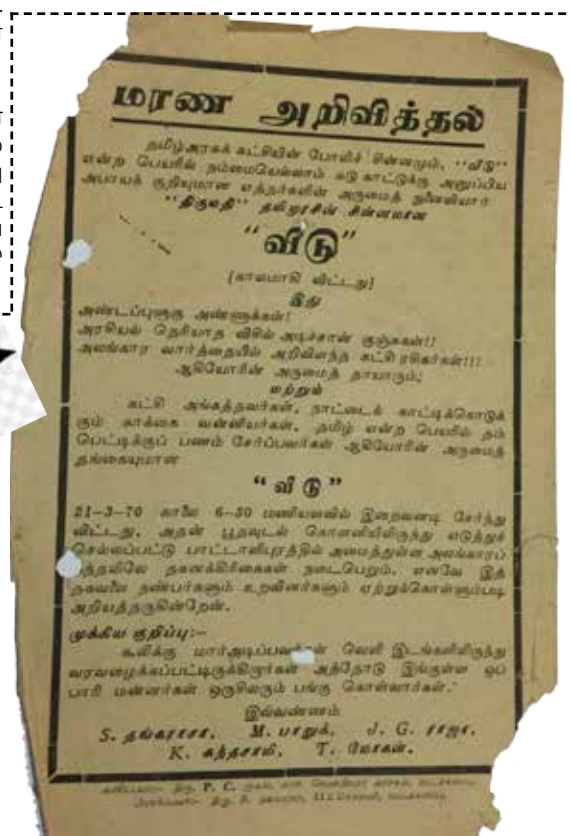 மரண அறிவித்தல்
தமிழ்அரசுக் கட்சியின் போலிச் சின்னமும், "வீடு"
என்ற பெயரில் நம்மையெல்லாம் சுடுகாட்டுக்கு அனுப்பிய
அபாயக் குறியுமான எத்தர்களின் அருமைத் துணைவியார்
"திருமதி" தமிழரசின் சின்னமான
"வீடு"
[காலமாகி விட்டது]
இது
அண்டப்புளுகு அண்ணாக்கள்!
அரசியல் தெரியாத விசில் அடிச்சான் குஞ்சுகள்!!
அலங்கார வார்த்தையில் அறிவிழந்த கட்சி ரசிகர்கள்!!!
ஆகியோரின் அருமைத் தாயாரும்;
மற்றும்
கட்சி அங்கத்தவர்கள், நாட்டைக் காட்டிக்கொடுக்
கும் காக்கை வன்னியர்கள், தமிழ் என்ற பெயரில் தம்
பெட்டிக்குப் பணம் சேர்ப்பவர்கள் ஆகியோரின் அருமைத்
தங்கையுமான
"வீடு"
21-3-70 காலை 6-30 மணியளவில் இறைவனடி சேர்ந்து
விட்டது. அதன் பூதவுடல் கொலனியிலிருந்து எடுத்துச்
செல்லப்பட்டு பாட்டாளிபுரத்தில் அமைத்துள்ள அலங்காரப்
தகனக்கிரிகைகள் நடைபெறும். எனவே இத்
தகவலை நண்பர்களும் உறவினர்களும் ஏற்றுக்கொள்ளும்படி
அறியத்தருகின்றேன்.
முக்கிய குறிப்பு:-
கூலிக்கு மார்அடிப்பவர்கள் வெளி இடங்களிலிருந்து
வரவழைக்கப்பட்டிருக்கிறார்கள் அத்தோடு இங்குள்ள ஒப்
பாரி மன்னர்கள் ஒருசிலரும் பங்கு கொள்வார்கள்.
இவ்வண்ணம்
S. தங்கராசா, M. பாறூக், J. G. ராஜா,
K. கந்தசாமி, T. மோகன்.